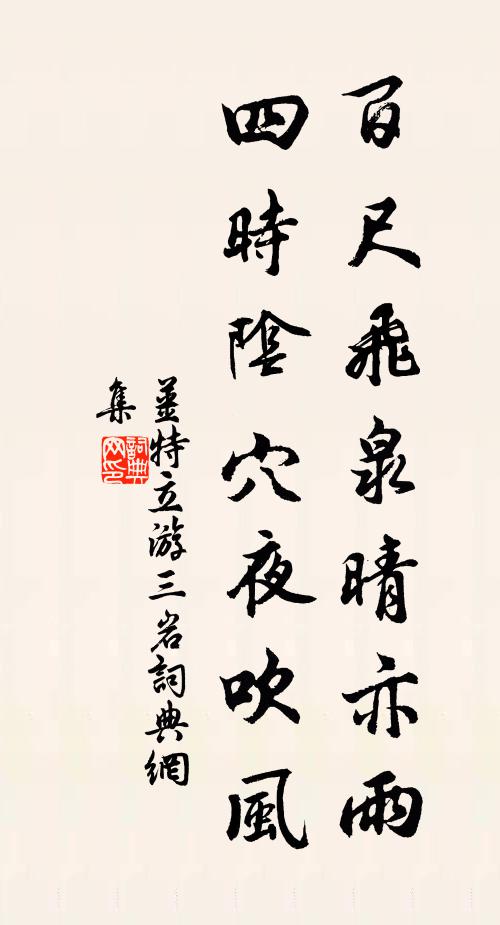 百尺飛泉晴亦雨
四時陰穴夜吹風
姜特立游三岩詞典網
集
詞典网印